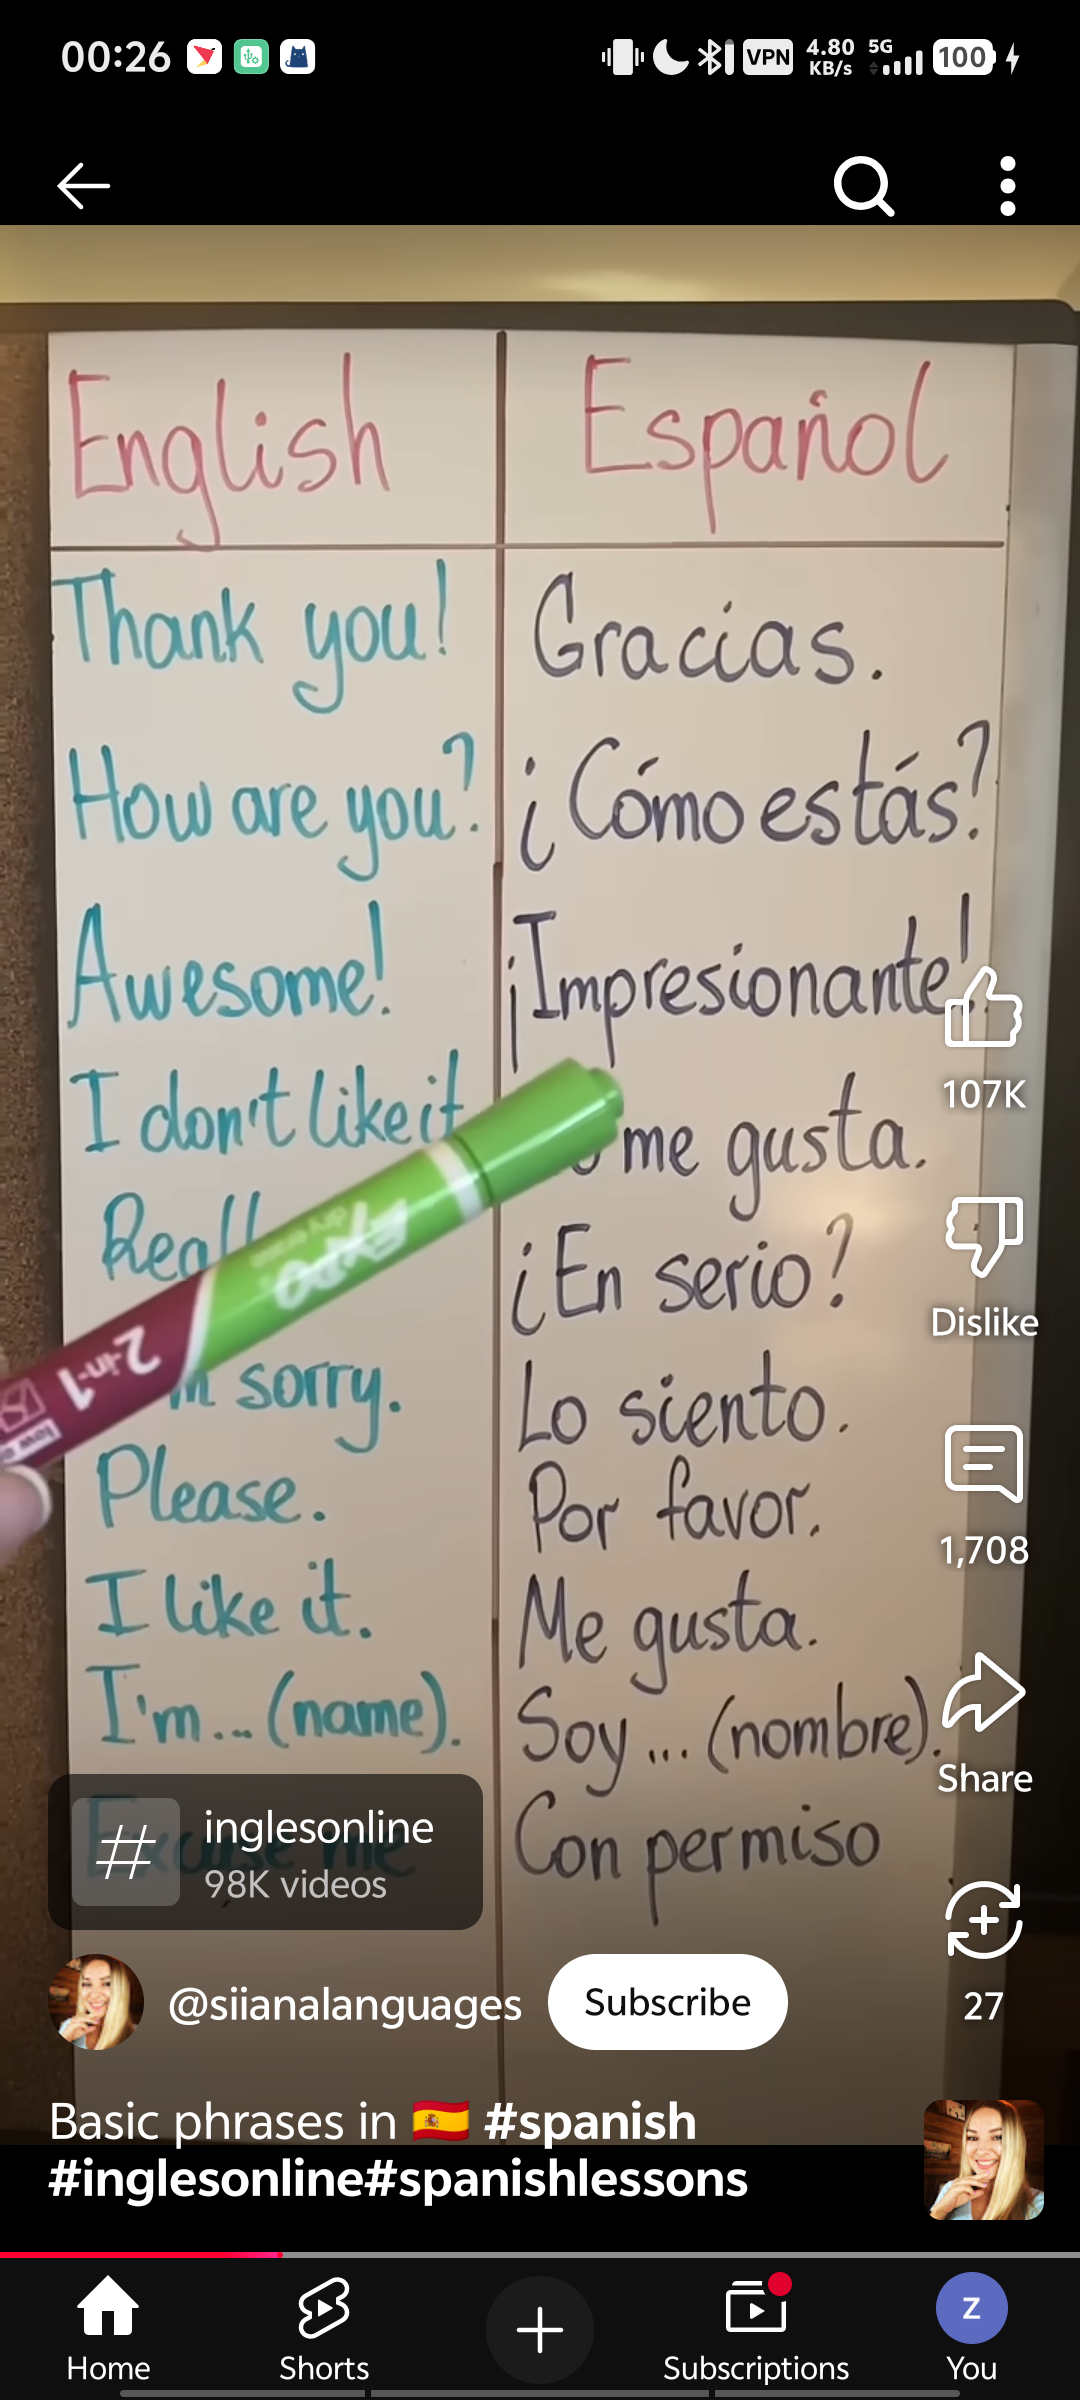 00:26
VPN
4.80
KB/s
5G
100
English
Español
Thank you!
Gracias.
How are you?
¿Cómo estás?
Awesome!
¡Impresionante!
I don't like it
me gusta.
¿En serio?
EXPO
2-in-1
sorry.
Lo siento.
Please.
Por favor.
I like it.
Me gusta.
I'm...(name).
Soy...(nombre).
Excuse me
Con permiso
107K
Dislike
1,708
Share
27
# inglesonline
98K videos
@siianalanguages
Subscribe
Basic phrases in 🇪🇸 #spanish
#inglesonline#spanishlessons
Home
Shorts
Subscriptions
Z
You